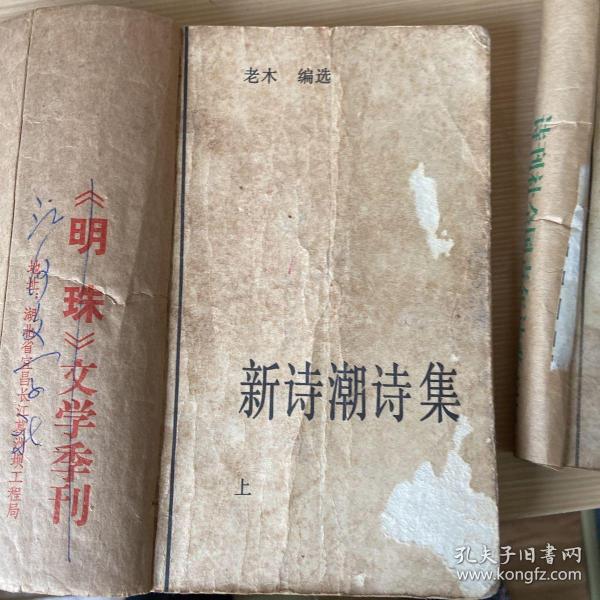 老木 编选
新诗潮诗集
上
《明珠》文学季刊
地址:湖北省宜昌长江葛洲坝工程局
孔夫子旧书网
www.kongfz.com